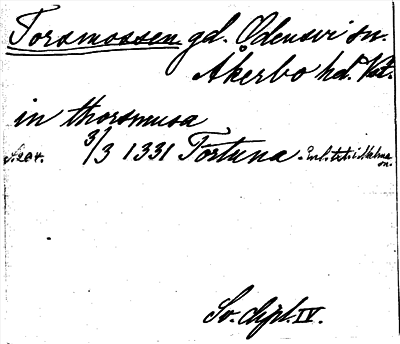 Torsmossen. gd. Odensvi sn.
Åkerbo hd. Vst.
in thorsmusa
3/3 1331 Tortuna
Sv. dipl. IV.